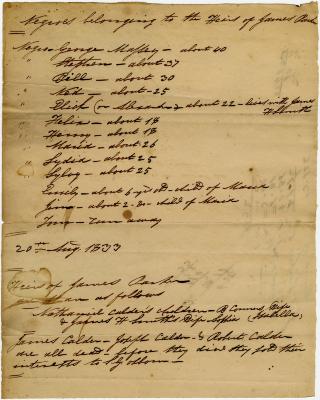 Negroes belonging to the Heirs of James Parker
Negro George Massey - about 40
" Stephen - about 37
" Bill - about 30
" Ned - about 25
" (or Alexander about 22 - lives with James
H Smith
" Felix - about 18
" Henry - about 18
" Maria - about 26
" Lydia - about 25
" Sylvy - about 25
Emily - about 6 yrs old - child of Maria
- about 2 - do - child of Maria
- run away
20th Aug. 1833
Heirs of James Parker
are as follows
Nathaniel Calder's children - R Connor,
& James H Smith's Sophia Isabella,
James Calder - Joseph Calder - & Robert Calder
are all dead - before they died they sold their
interests to